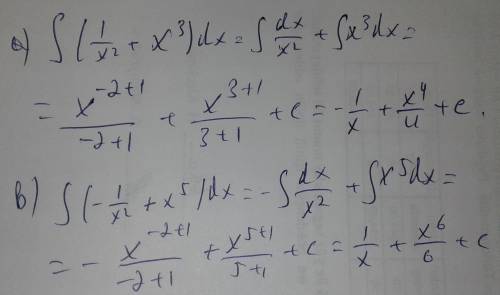 a) ∫(1/x² + x³)dx = ∫dx/x² + ∫x³dx =
= x^(-2+1)/(-2+1) + x^(3+1)/(3+1) + c = -1/x + x⁴/4 + c.
b) ∫(-1/x² + x⁵)dx = -∫dx/x² + ∫x⁵dx =
= - x^(-2+1)/(-2+1) + x^(5+1)/(5+1) + c = 1/x + x⁶/6 + c